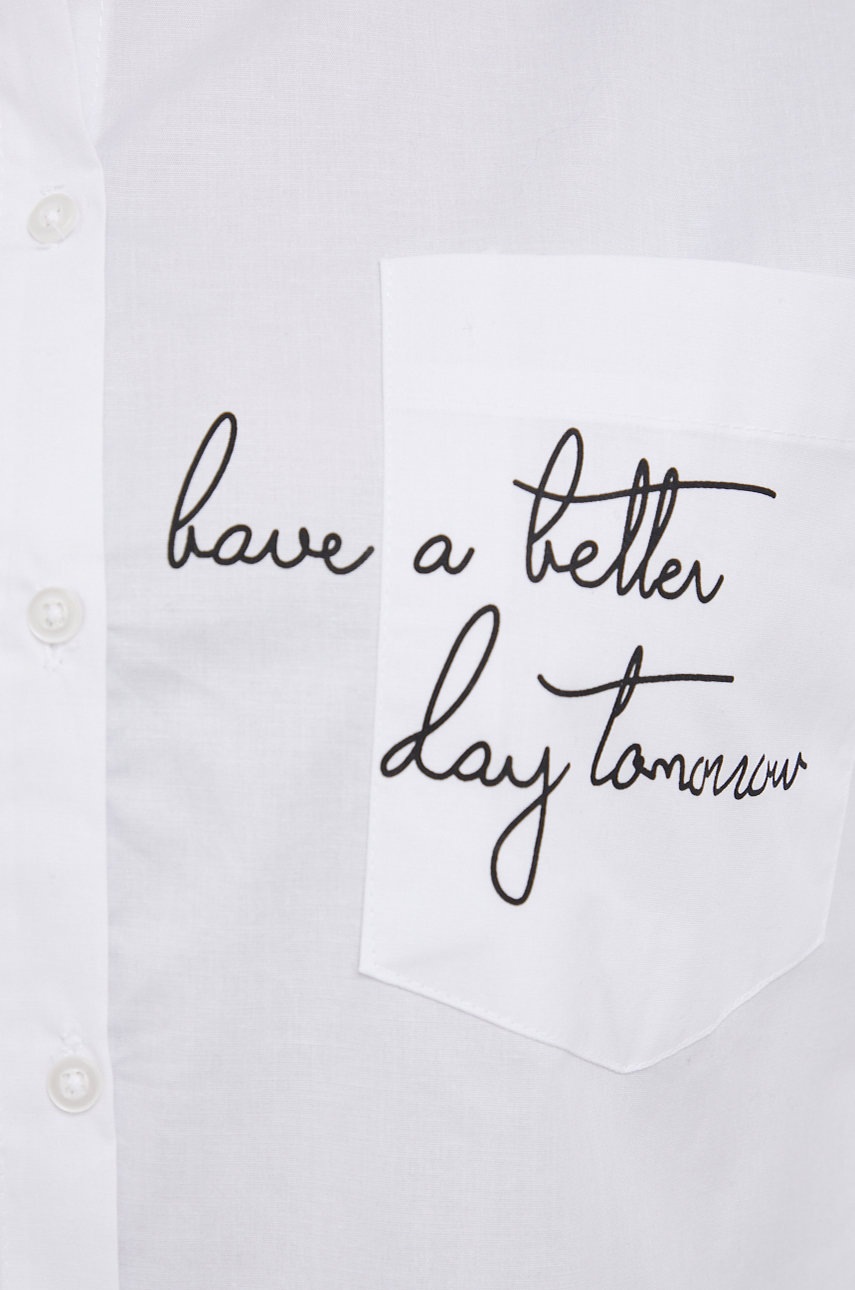 have a better
day tomorrow